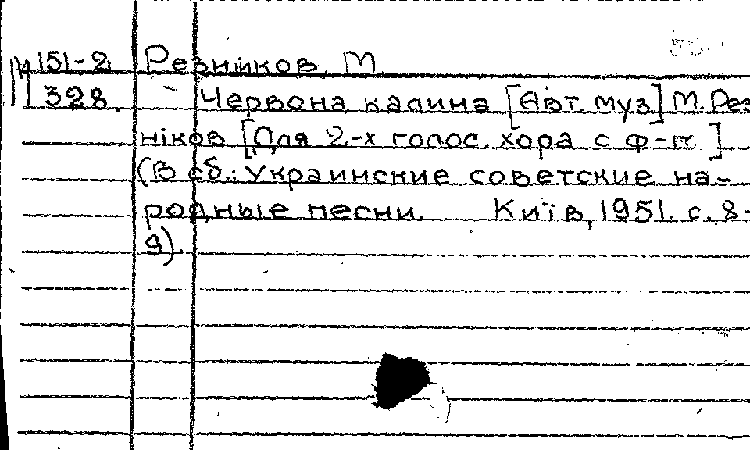 М 151-2 Резников, М
328. Червона калина [Авт. муз] М. Рез
ніков [Для 2-х голос. хора с ф-п.]
(В сб.: Украинские советские на-
родные песни. Київ, 1951. с. 8-
9).